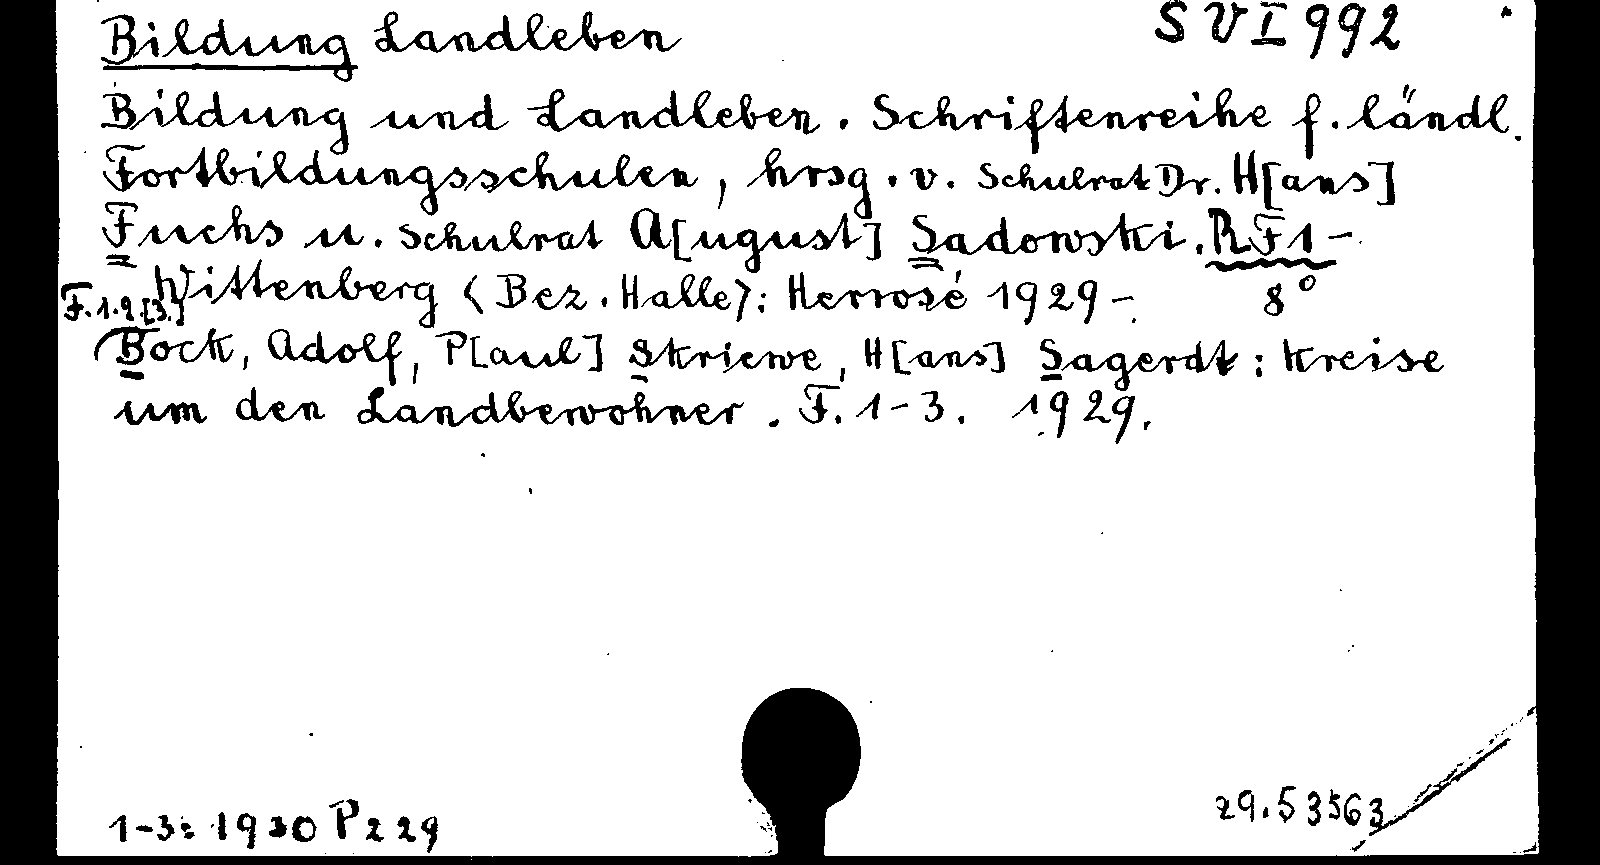 Bildung Landleben S VI 992
Bildung und Landleben. Schriftenreihe f. ländl.
Fortbildungsschulen, hrsg. v. Schulrat Dr. H[ans]
Fuchs u. Schulrat A[ugust] Sadowski. RF1-
Wittenberg (Bez. Halle): Herrosé 1929-. 8°
F.1.2.[3.]
Bock, Adolf, P[aul] Skriewe, H[ans] Sagerdt: Kreise
um den Landbewohner. F. 1-3. 1929.
1-3: 1930 P 229
29.53563